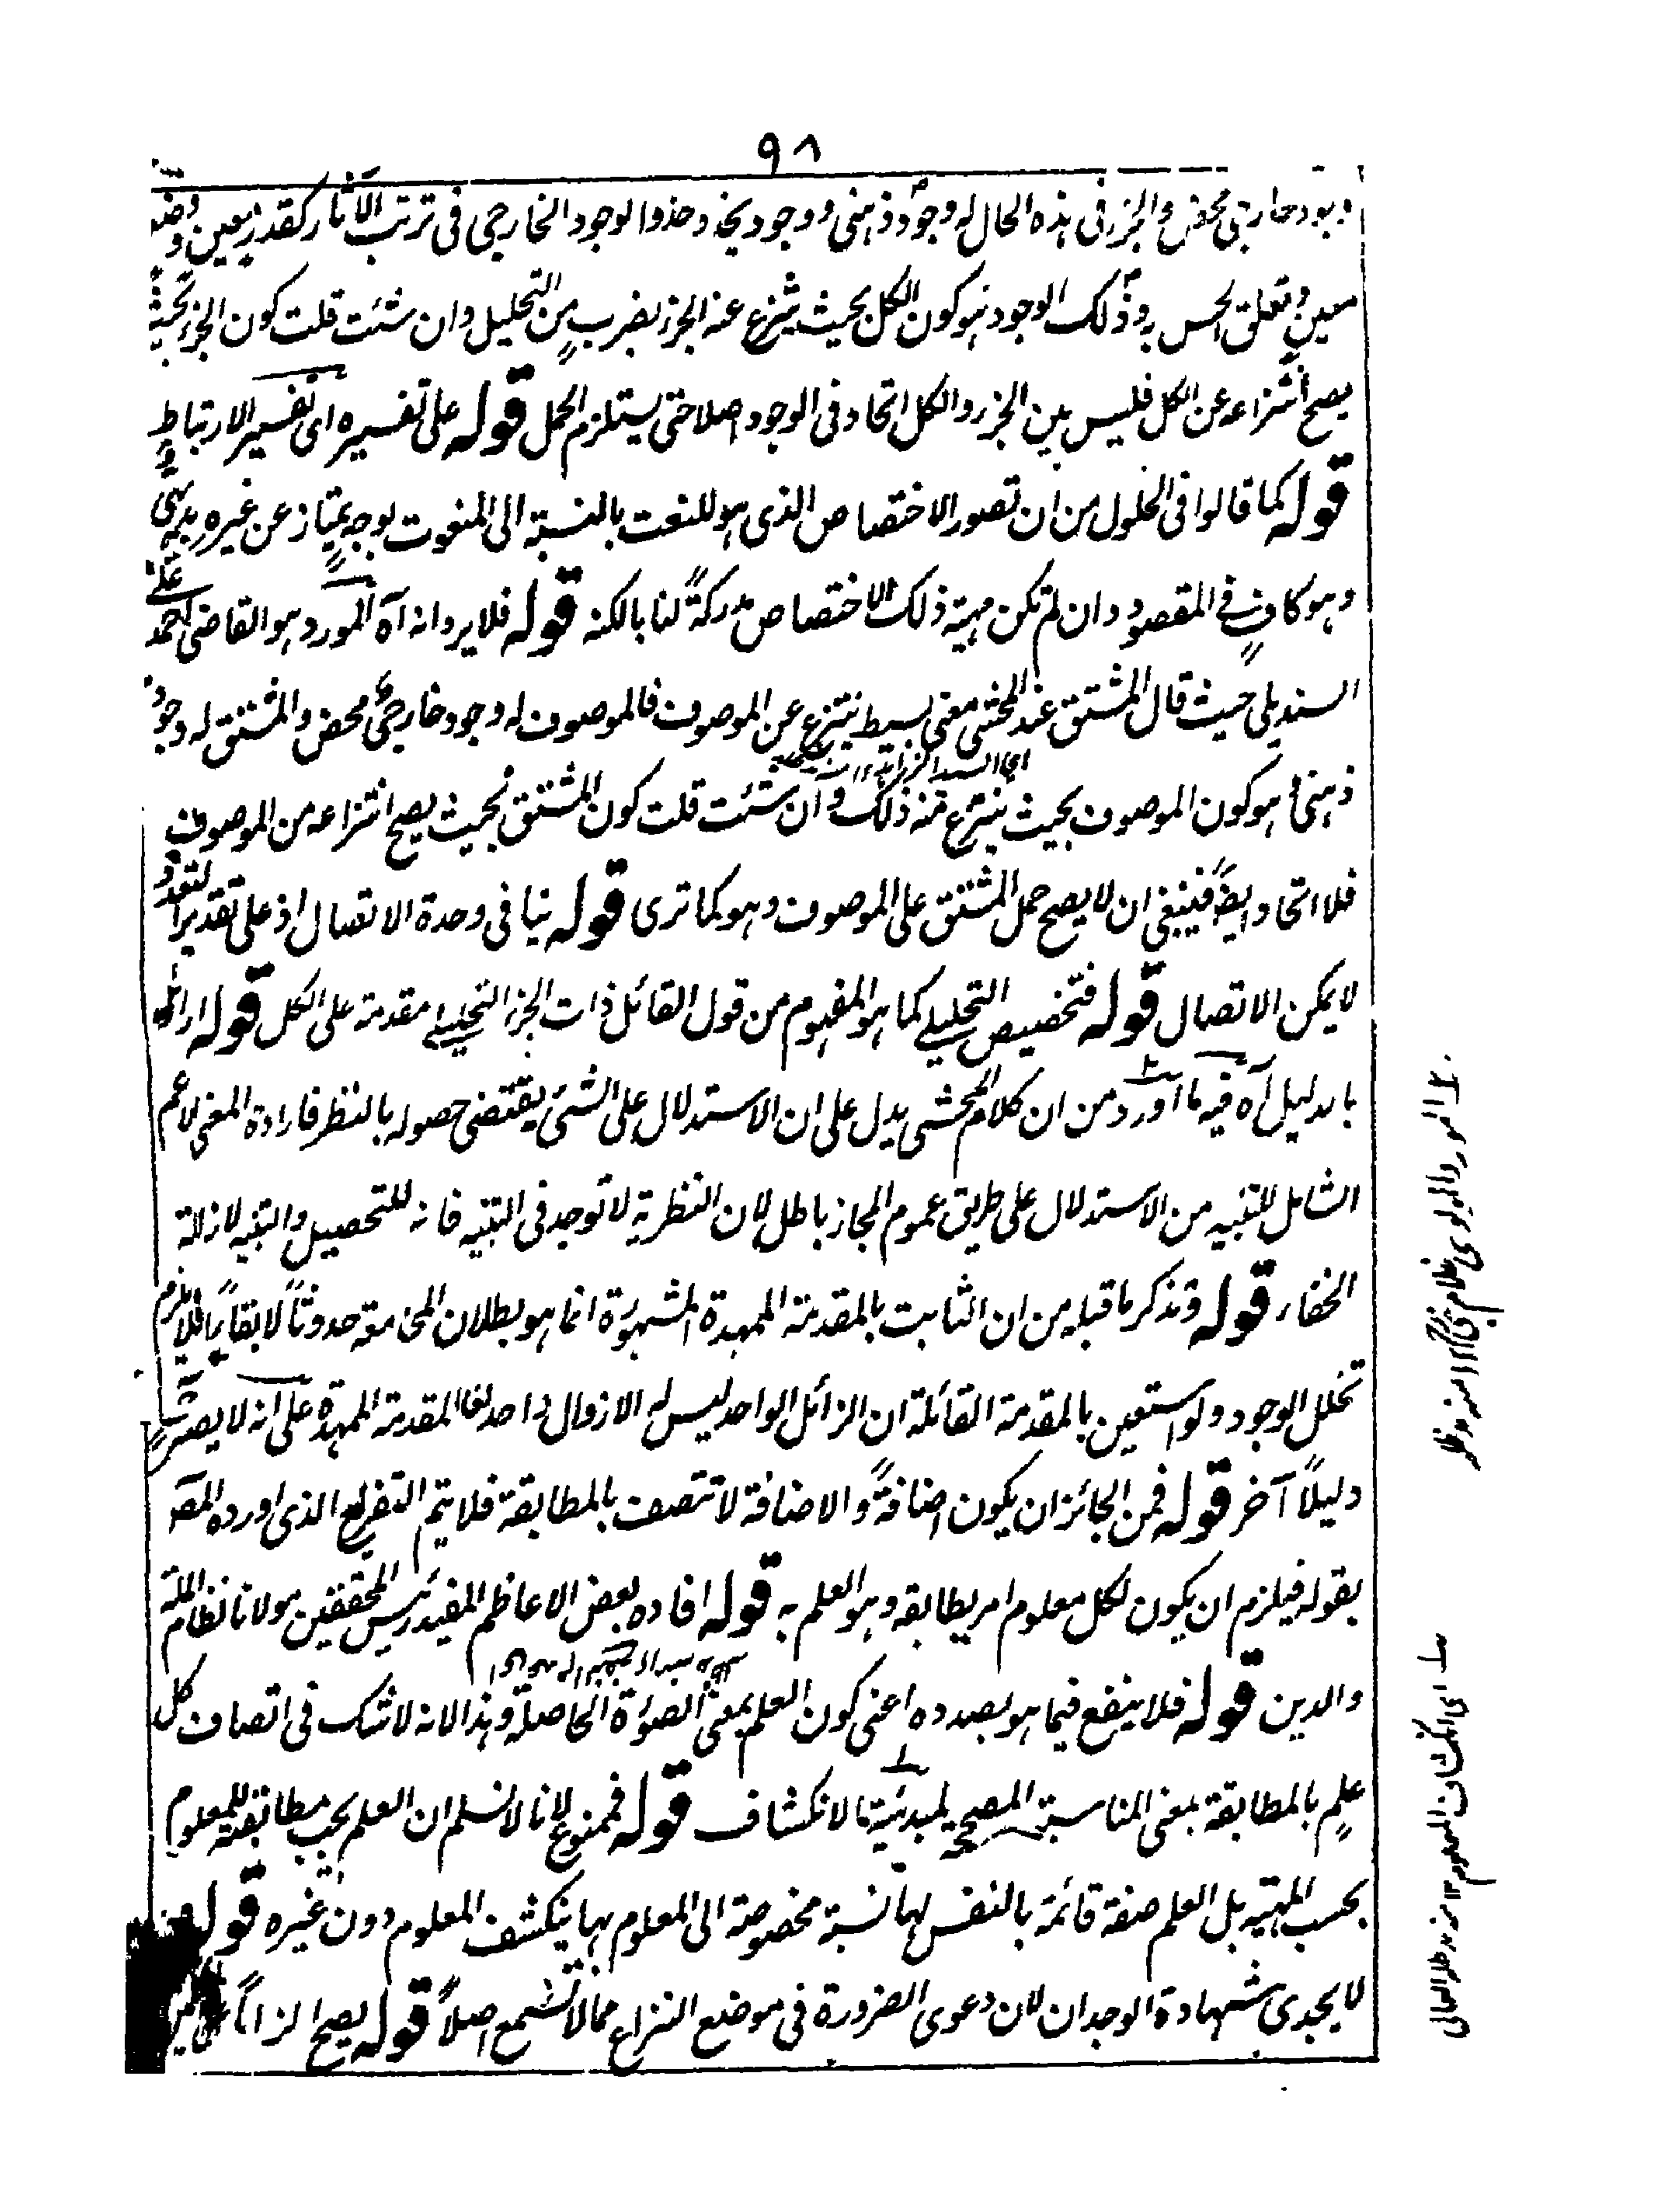 ٩٨
وجود خارجي محض والجزء في هذه الحال له وجود ذهني ووجود يحذو حذو الوجود الخارجي في ترتب الآثار كقدر معين ووضع
معين وتعلق الحس به وذلك الوجود هو كون الكل بحيث ينتزع عنه الجزء بضرب من التحليل وان شئت قلت كون الجزء بحيث
يصح انتزاعه عن الكل فليس بين الجزء والكل اتحاد في الوجود اصلا حتى يستلزم الحمل قوله على تفسيره اى تفسير الارتباط
قوله كما قالوا في الحلول من ان تصور الاختصاص الذى هو للنعت بالنسبة الى المنعوت بوجه يمتاز عن غيره بديهى
وهو كافٍ في المقصود وان لم تكن مهية ذلك الاختصاص مدركةً لنا بالكنه قوله فلا يرد انه آه المورد هو القاضى احمد على
السنديلى حيث قال المشتق عند المحشى معنى بسيط ينتزع عن الموصوف فالموصوف له وجود خارجي محض والمشتق له وجود
ذهني هو كون الموصوف بحيث ينتزع عنه ذلك وان شئت قلت كون المشتق بحيث يصح انتزاعه من الموصوف
فلا اتحاد ايضاً فينبغي ان لا يصح حمل المشتق على الموصوف وهو كما ترى قوله ينافى وحدة الاتصال اذ على تقدير التعدد
لا يمكن الاتصال قوله فتخصيص التحليلي كما هو المفهوم من قول القائل ذات الجزء التحليلي مقدمة على الكل قوله اراد
بالدليل آه فيه ما اورد من ان كلام المحشى يدل على ان الاستدلال على الشئ يقتضى حصوله بالنظر فارادة المعنى الاعم
الشامل للتنبيه من الاستدلال على طريق عموم المجاز باطل لان النظرية لا توجد في التنبيه فانه للتحصيل والتنبيه لازالة
الخفاء قوله وتذكر ما قبله من ان الثابت بالمقدمة الممهدة المشهورة انما هو بطلان المخ معة حدوثاً لا بقاءً فلا يلزم
تخلل الوجود ولو استعين بالمقدمة القائلة ان الزائل الواحد ليس له الا زوال واحد لغا المقدمة الممهدة على انه لا يصير
دليلاً آخر قوله فمن الجائز ان يكون اضافةً والاضافة لا تتصف بالمطابقة فلا يتم التفريع الذى اورده المصـ
بقوله فيلزم ان يكون لكل معلوم امر يطابقه وهو العلم به قوله افاده بعض الاعاظم المفيد رئيس المحققين مولانا نظام الملة
والدين قوله فلا ينفع فيما هو بصدده اعنى كون العلم بمعنى الصورة الحاصلة وهذا لانه لا شك في اتصاف كل
علم بالمطابقة بمعنى المناسبة المصححة لمبدئيته الانكشاف قوله فممنوع لانا لا نسلم ان العلم يجب مطابقته للمعلوم
بحسب المهية بل العلم صفة قائمة بالنفس لها نسبة مخصوصة الى المعلوم بها ينكشف المعلوم دون غيره قوله
لا يجدى شهادة الوجدان لان دعوى الضرورة في موضع النزاع مما لا تسمع اصلاً قوله يصح الزاماً
المورد المولوى غلام يحيى ١٢ منه مد ظله
اى انكشاف المعلوم ١٢ منه مد ظله العالى